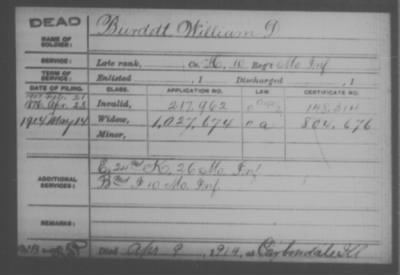 DEAD
NAME OF SOLDIER: Burdett, William D.
SERVICE: Late rank, , Co. K, 10 Reg't Mo Inf
TERM OF SERVICE: Enlisted , 1 Discharged , 1
DATE OF FILING. CLASS. APPLICATION NO. LAW. CERTIFICATE NO.
1876 Apr. 22 Invalid, 217,962
1914 May 14 Widow, 1,027,674 804,676
Minor,
ADDITIONAL SERVICES: E, K, 26 Mo Inf
10 Mo. Inf.
REMARKS:
Died Apr 9, 1914, at Carbondale Ill